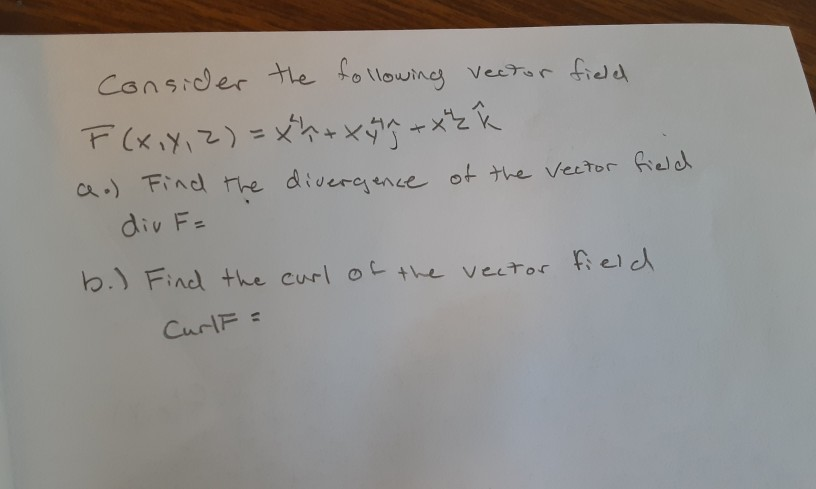 Consider the following vector field
F(x,y,z) = x⁴î + xy⁴ĵ + x⁴z k̂
a.) Find the divergence of the vector field
div F=
b.) Find the curl of the vector field
Curl F =